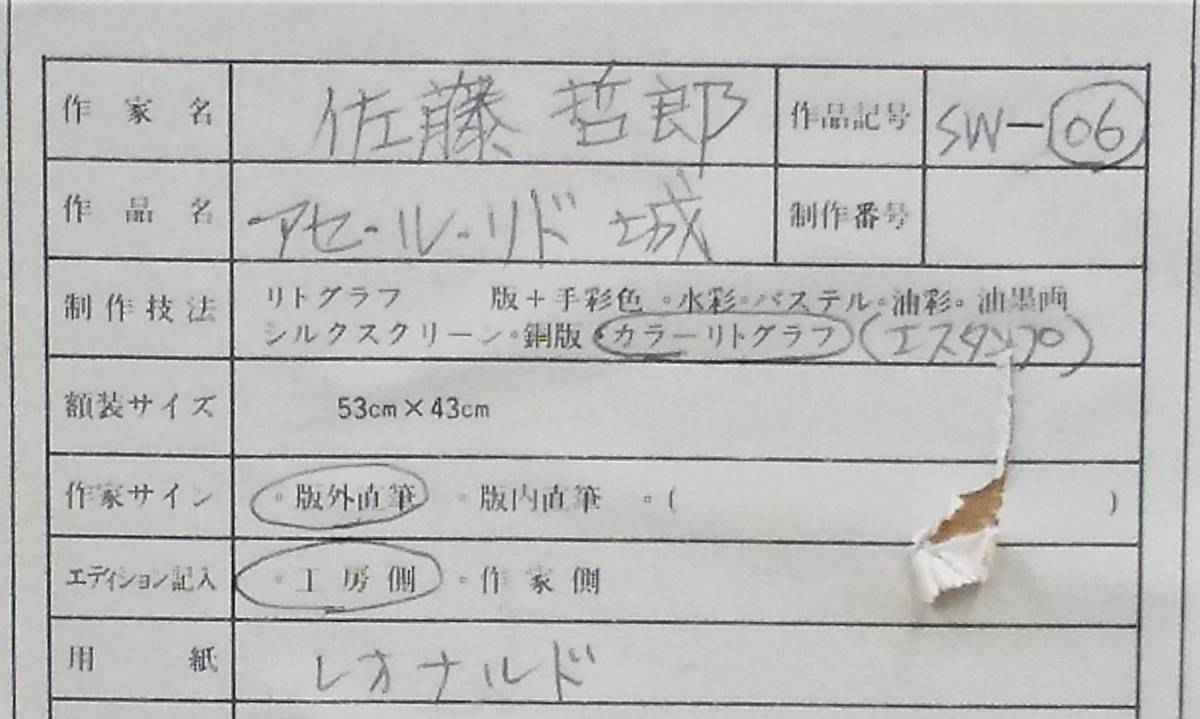 作家名 佐藤 哲郎 作品記号 SW-06
作品名 アセ・ル・リド 城 制作番号
制作技法 リトグラフ 版+手彩色 ◦水彩◦パステル◦油彩◦油墨画
シルクスクリーン◦銅版◦カラーリトグラフ (エスタンプ)
額装サイズ 53cm×43cm
作家サイン ◦版外直筆 ◦版内直筆 ◦( )
エディション記入 ◦工房側 ◦作家側
用紙 レオナルド